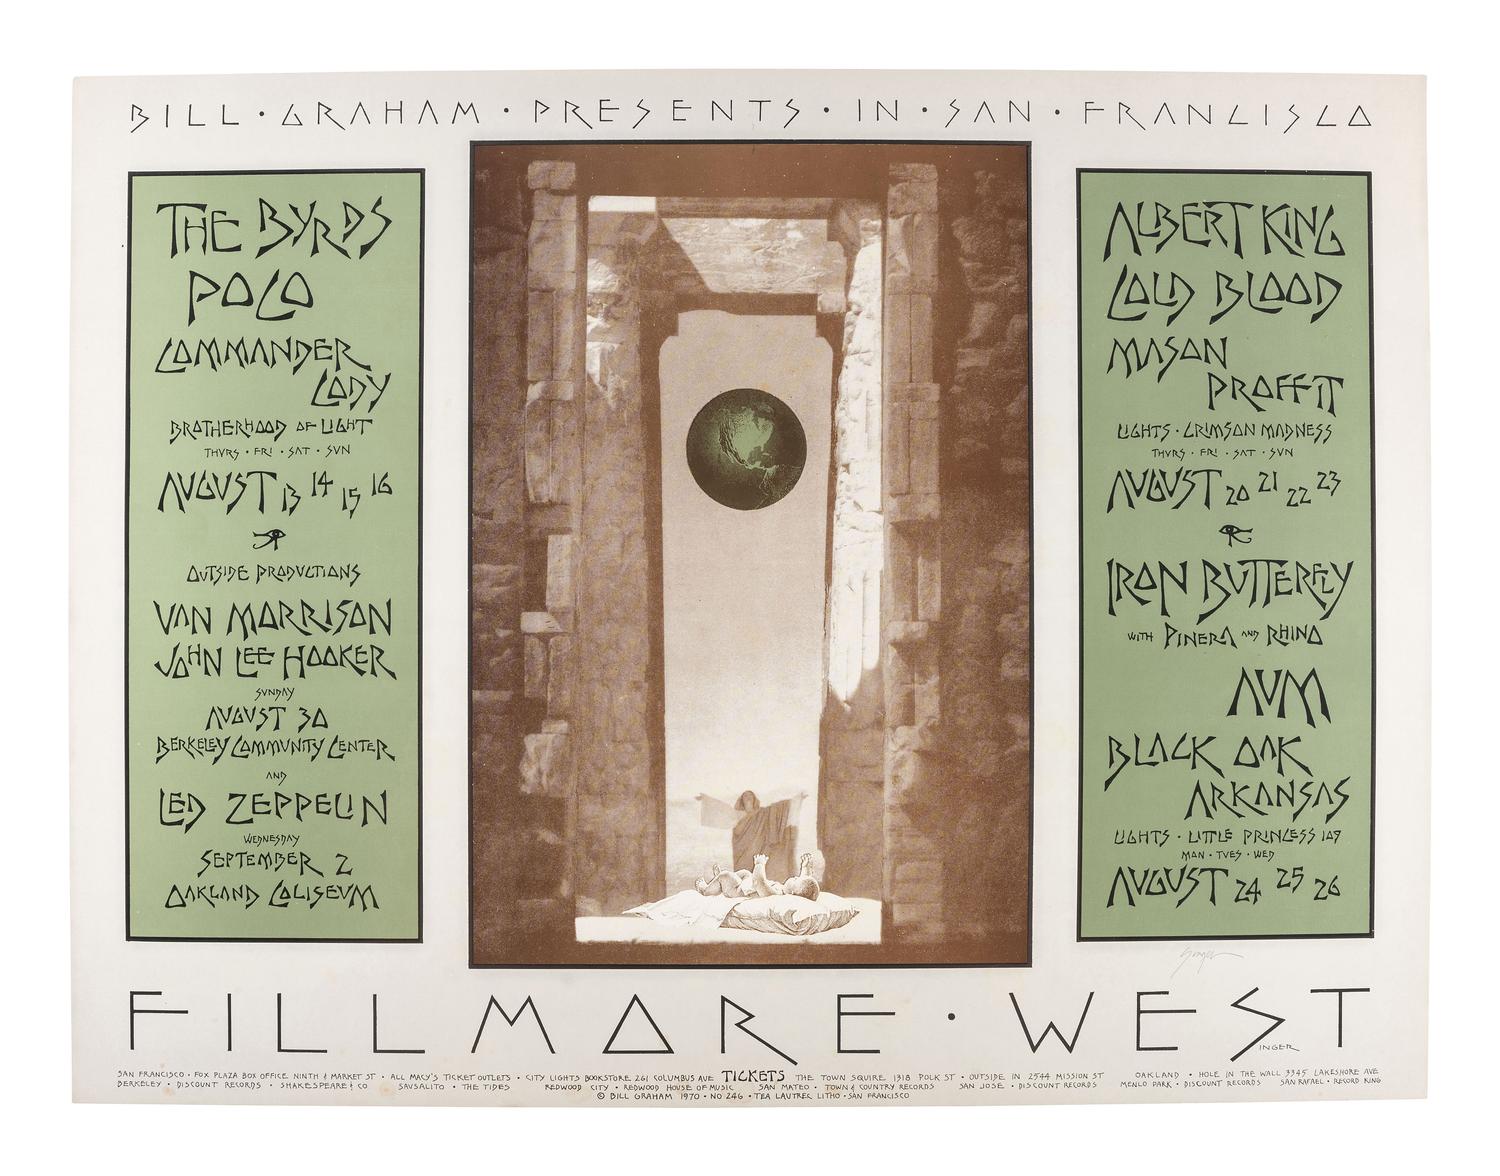 BILL • GRAHAM • PRESENTS • IN • SAN • FRANCISCO
THE BYRDS
POCO
COMMANDER
CODY
BROTHERHOOD OF LIGHT
THURS • FRI • SAT • SUN
AUGUST 13 14 15 16
OUTSIDE PRODUCTIONS
VAN MORRISON
JOHN LEE HOOKER
SUNDAY
AUGUST 30
BERKELEY COMMUNITY CENTER
AND
LED ZEPPELIN
WEDNESDAY
SEPTEMBER 2
OAKLAND COLISEUM
ALBERT KING
COLD BLOOD
MASON
PROFFIT
LIGHTS • CRIMSON MADNESS
THURS • FRI • SAT • SUN
AUGUST 20 21 22 23
IRON BUTTERFLY
WITH PINERA AND RHINO
AUM
BLACK OAK
ARKANSAS
LIGHTS • LITTLE PRINCESS 109
MON • TUES • WED
AUGUST 24 25 26
Singer
FILLMORE • WEST
SINGER
SAN FRANCISCO • FOX PLAZA BOX OFFICE NINTH & MARKET ST • ALL MACY'S TICKET OUTLETS • CITY LIGHTS BOOKSTORE 261 COLUMBUS AVE TICKETS THE TOWN SQUIRE 1318 POLK ST • OUTSIDE IN 2544 MISSION ST OAKLAND • HOLE IN THE WALL 3345 LAKESHORE AVE
BERKELEY • DISCOUNT RECORDS • SHAKESPEARE & CO SAUSALITO • THE TIDES REDWOOD CITY • REDWOOD HOUSE OF MUSIC SAN MATEO • TOWN & COUNTRY RECORDS SAN JOSE • DISCOUNT RECORDS MENLO PARK • DISCOUNT RECORDS SAN RAFAEL • RECORD KING
© BILL GRAHAM 1970 • NO 246 • TEA LAUTREC LITHO • SAN FRANCISCO